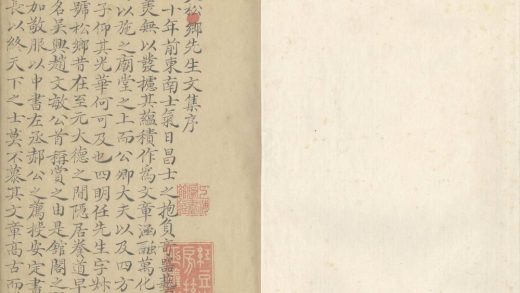 松鄉先生文集序
十年前東南士氣日昌士之抱負奇器
羙無以發攄其蘊積作為文章涵融萬化
以施之廟堂之上而公卿大夫以及四方
子仰其光華何可及也四明任先生字
號松鄉昔在至元大德之間隱居養道早
名吳興趙文敏公首稱賞之由是館閣之
加敬服以中書左丞郝公之薦授安定書
長以終天下之士莫不慕其文章高古而